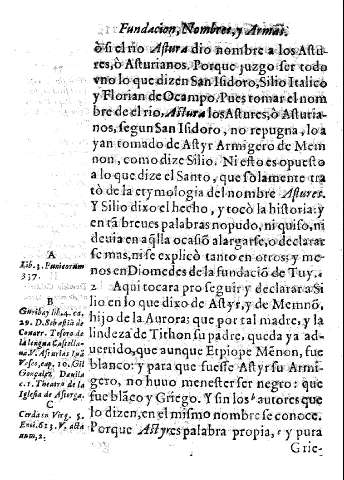 Fundacion, Nombres, y Armas.
ò si el rio Astura dio nombre a los Astu-
res, ò Asturianos. Porque juzgo ser todo
vno lo que dizen San Isidoro, Silio Italico
y Florian de Ocampo. Pues tomar el nom
bre de el rio, Astura los Astures, ò Asturia-
nos, segun San Isidoro, no repugna, lo a
yan tomado de Astyr Armigero de Mem
non, como dize Silio. Ni esto es opuesto
a lo que dize el Santo, que solamente tra
tò de la etymologia del nombre Astures.
Y Silio dixo el hecho, y tocò la historia: y
en tã breues palabras no pudo, ni quiso, ni
deuia en aq̃lla ocasiõ alargarse, o declarar
se mas, ni se explicò tanto en otros: y me-
nos en Diomedes de la fundaciõ de Tuy.
2 Aqui tocara proseguir y declarar a Si
lio en lo que dixo de Astyr, y de Memnõ,
hijo de la Aurora: que por tal madre, y la
lindeza de Tithon su padre, queda ya ad-
uertido, que aunque Etpiope Mẽnon, fue
blanco: y para que fuesse Astyr su Armi-
gero, no huuo menester ser negro: que
fue blãco y Griego. Y sin los autores que
lo dizen, en el mismo nombre se conoce.
Porque Astyres palabra propia, y pura
Grie-
A
Lib. 3. Punicorum
337.
B
Garibay lib. 4. ca.
29. D. Sebastiã de
Couarr. Tesoro de
la lengua Castella-
na V. Asturias Iuã
Vaseo, cap. 10. Gil
Gonçalez Dauila
c. 1. Theatro de la
Iglesia de Astorga.
C
Cerda in Virg. 5.
Enei. 623. V. acta
num, 2.